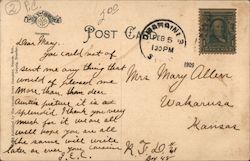 2
P.C.
200
POST CARD
FEB 5
1 30 PM
1909
Dear Mary.
You could not of
sent me any thing that
would of pleased me
More than than dear
Aunties picture it is as
splendid. I thank you very
much for it we are all
well hope you are all
the same will write
later as ever you cousin
J.E.C.
Mrs Mary Allen
Wakarusa
Kansas
R F D 1
Bx 45